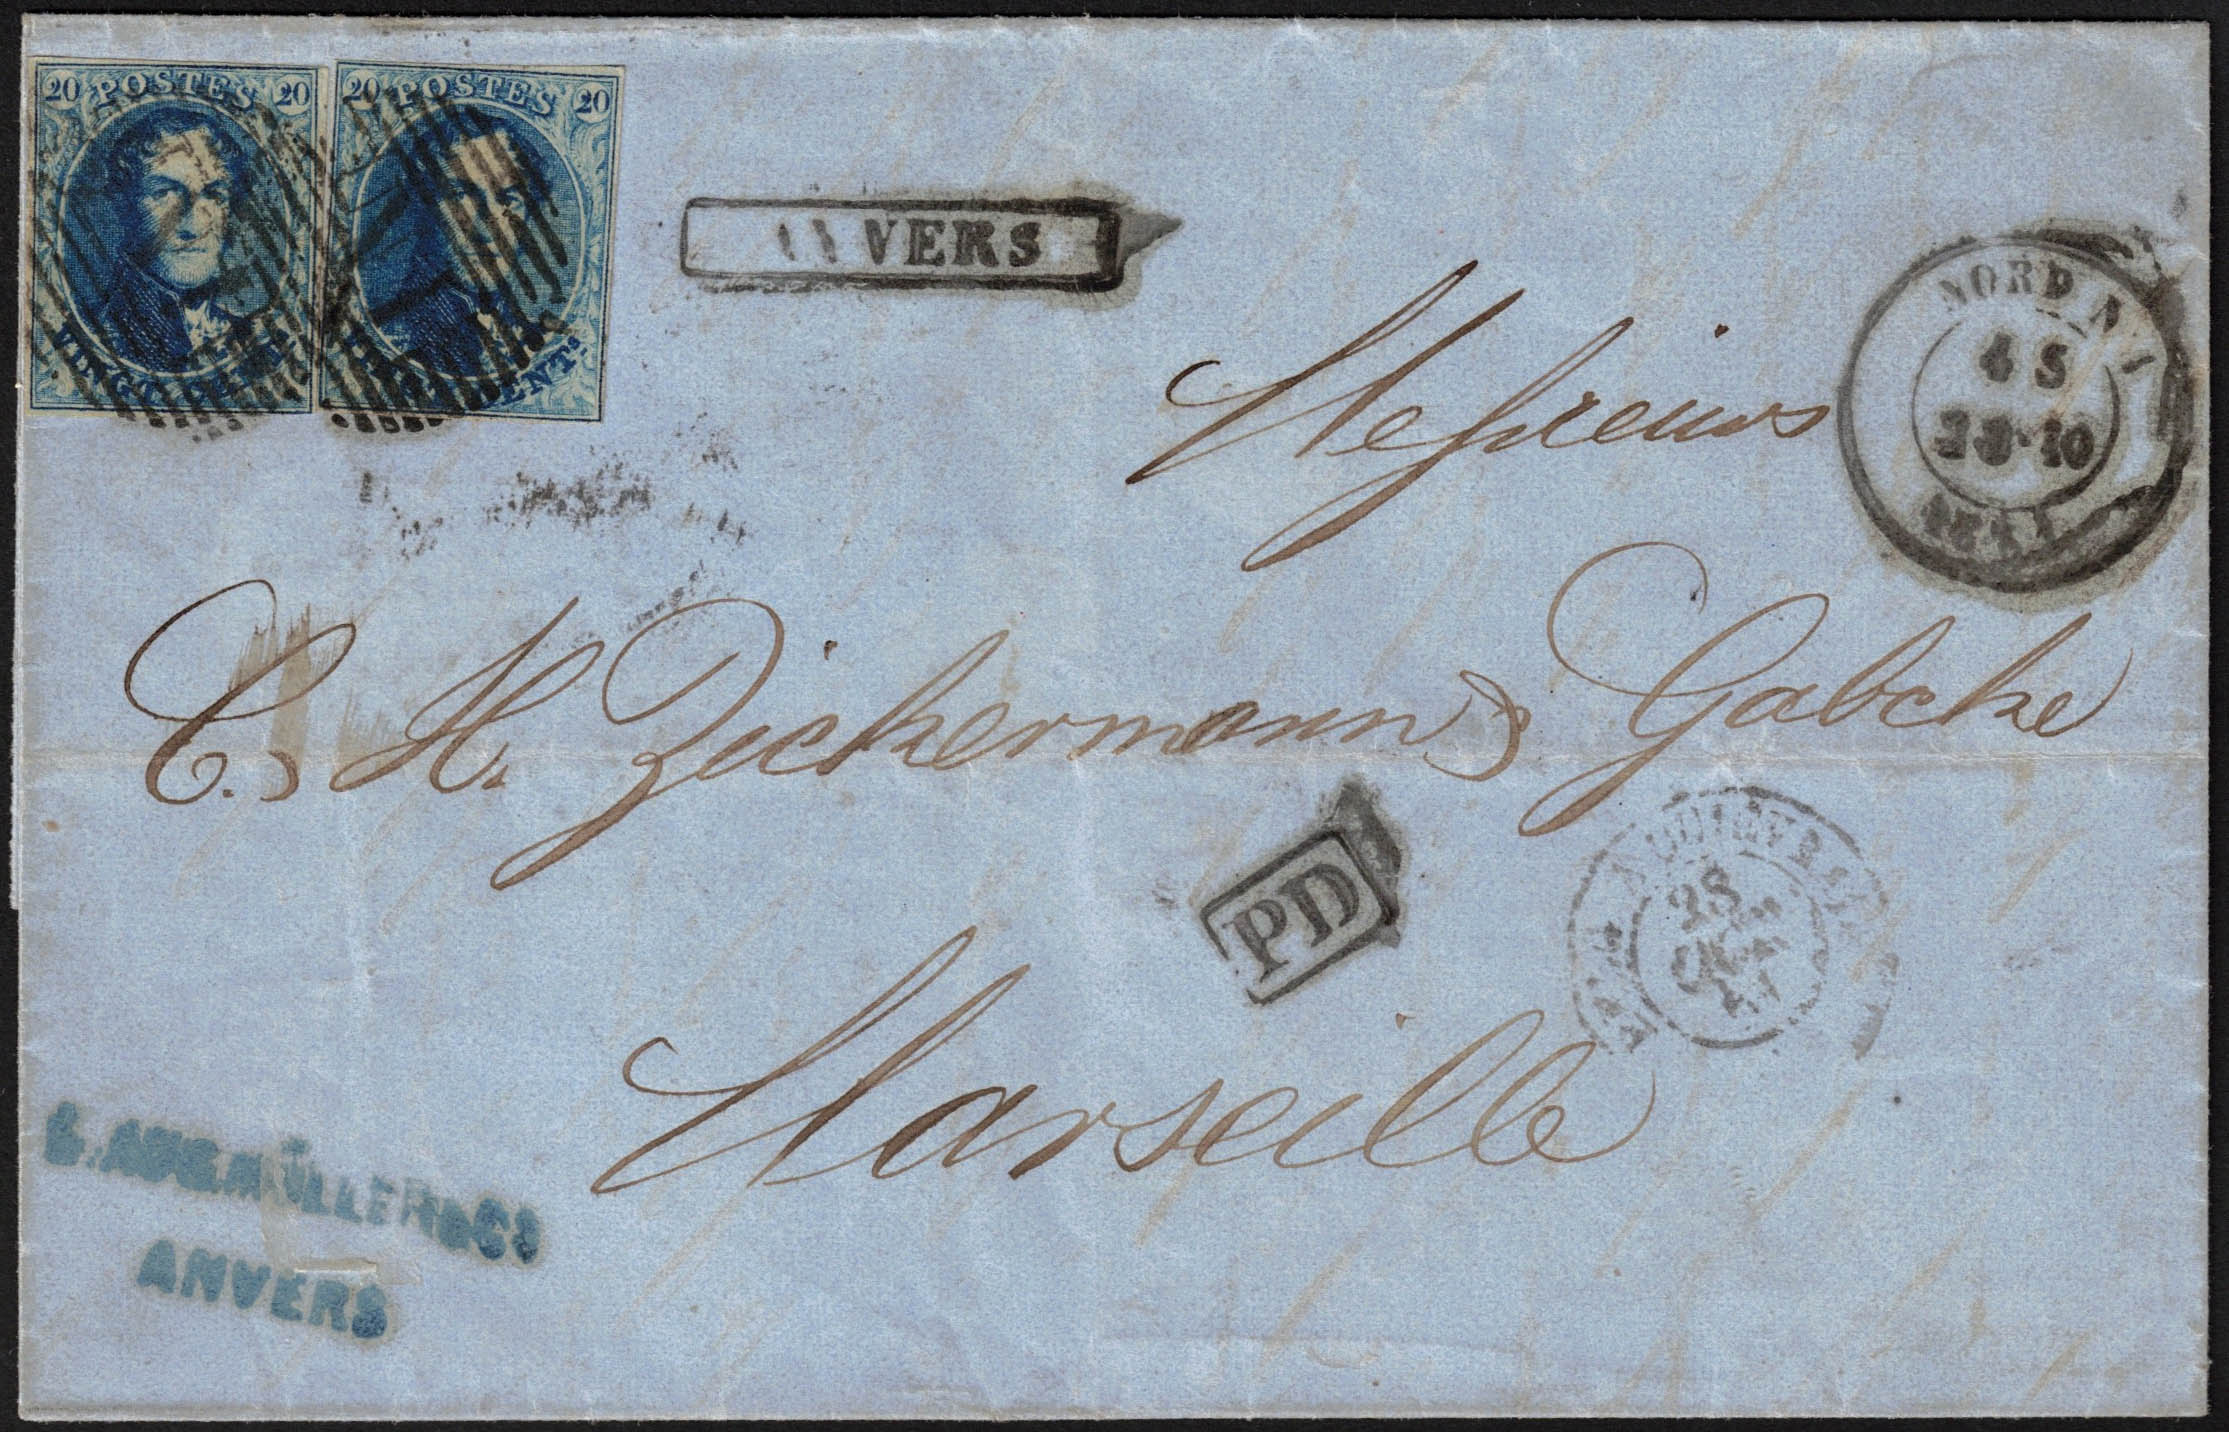 20 POSTES 20
20 POSTES 20
VINGT
CENTS
ANVERS
NORD N° 1
4 S
28·10
Messieurs
C. H. Zickermann & Gabcke
PD
28
OCT.
Marseille
ANVERS